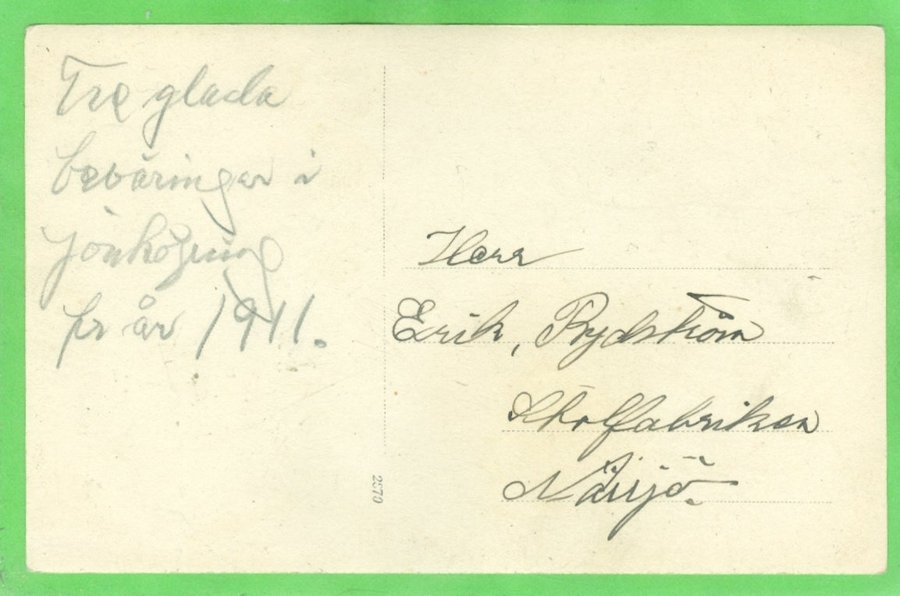 Tre glada
beväringar i
Jönköping
pr år 1911.
Herr
Erik, Rydström
Stolfabriken
Nässjö
2570